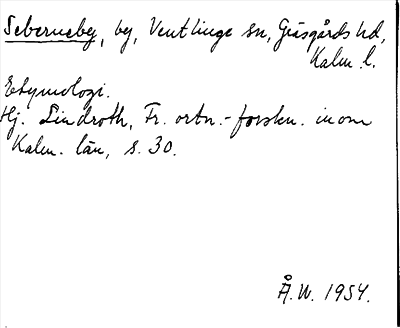 Seberneby, by, Ventlinge sn, Gräsgårds hd,
Kalm. l.
Etymologi.
Hj. Lindroth, Fr. ortn.-forskn. inom
Kalm. län, s. 30.
Å.W. 1954.